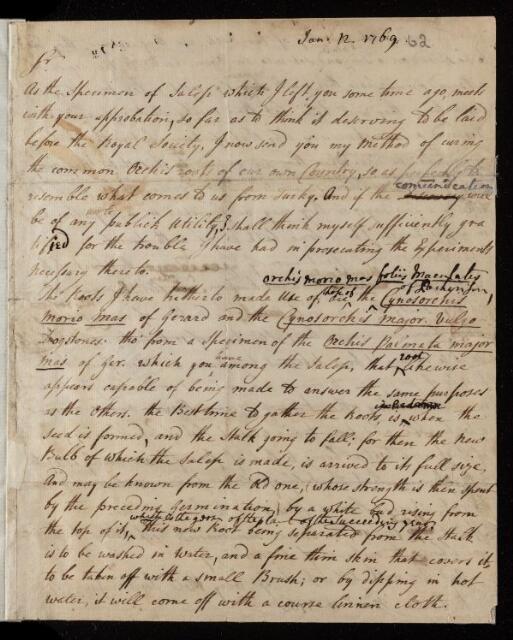 Jan: 12. 1769. 62
Sr
As the Specimen of Salep which I left you some time ago, meets
with your approbation, so far as to think it deserving to be laid
before the Royal Society, I now send you my Method of curing
the common Orchis roots of our own Country, so as perfectly to
resemble what comes to us from Turky. And if the communication
be of any publick Utility, I shall think myself sufficiently gra
tified for the trouble I have had in prosecuting the Experiments
necessary thereto.
orchis morio mas foliis Maculatis
The Roots I have hitherto made Use of, are those of the Cynosorchis
morio mas of Gerard and the Cynosorchis major. Vulgo
Dogstones. tho' from a Specimen of the Orchis Palmata major
mas of Ger. which you have among the Salep, that root likewise
appears capable of being made to answer the same purposes
as the others. the Best time to gather the Roots, is when the
seed is formed, and the Stalk going to fall: for then the New
Bulb of which the Salep is made, is arrived to its full size,
And may be known from the Old one, (whose strength is then spent
by the preceding Germination) by a white Bud rising from
the top of it, which is the germ of the plant of the succeeding year
this new Root being separated from the Stalk
is to be washed in Water, and a fine thin skin that covers it
to be taken off with a small Brush; or by dipping in hot
water, it will come off with a course linnen cloth.